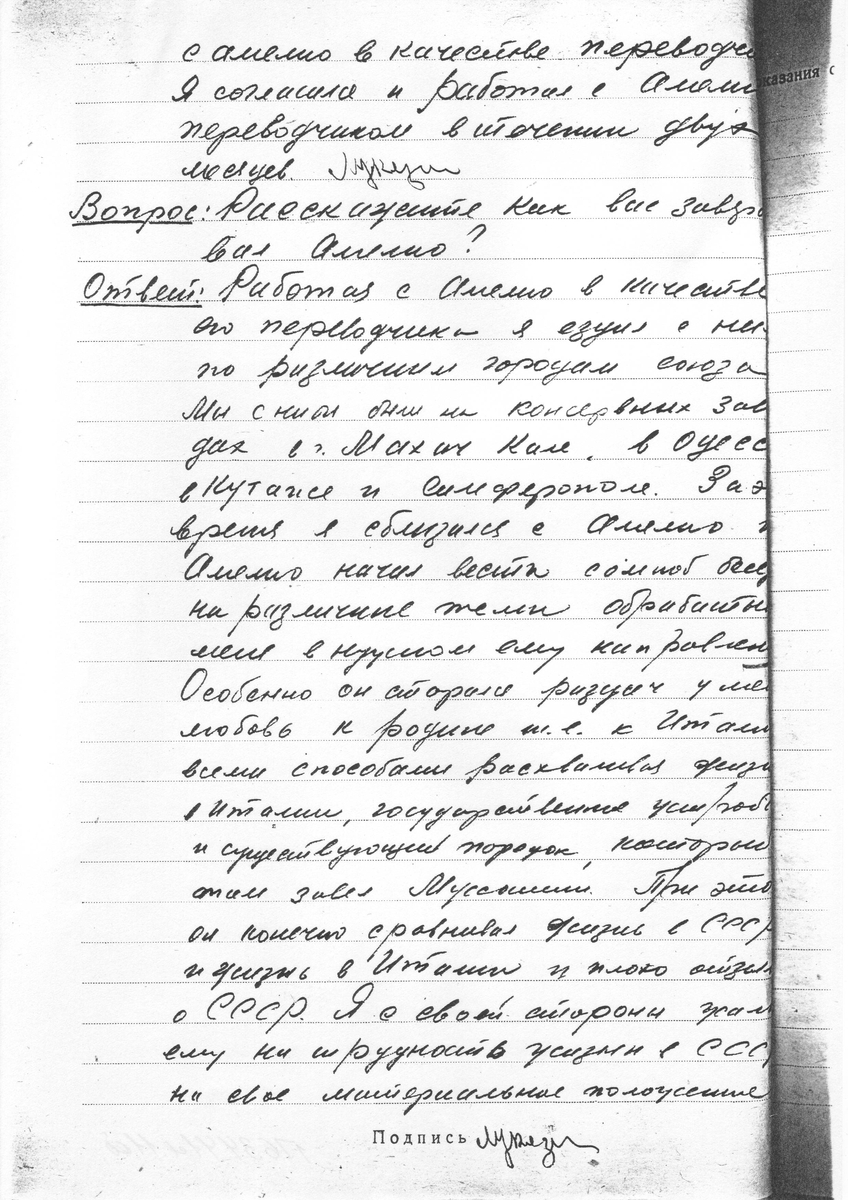 с амелио в качестве переводчи
Я согласился и работал с Амели
переводчиком в течении двух
месяцев. Лукези
Вопрос: Расскажите как вас завер
вал Амелио?
Ответ: Работая с Амелио в качестве
его переводчика я ездил с ни
по различным городам союза
Мы с ним были на консервных зав
дах в г. Махач Кале, в Одесс
в Кутаисе и Симферополе. За э
время я сблизился с Амелио и
Амелио начал вести сомной бесед
на различные темы обрабатыв
меня в нужном ему направлен
Особенно он старался раздуч у ме
любовь к родине т.е. к Итали
всеми способами расхваливая жизн
в Италии, государственное устройс
и существующий порядок, который
там завел Муссолини. При это
он конечно сравнивал жизнь в СССР
и жизнь в Италии и плохо отзыв
о СССР. Я с своей стороны жал
ему на трудность жизни в ССС
на свое материальное положение
Подпись Лукези
казания о